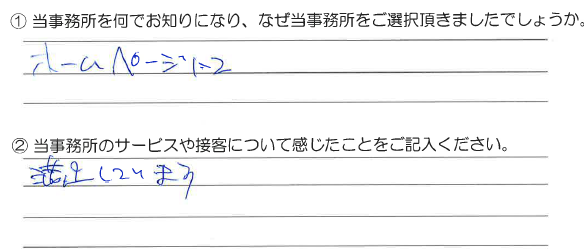 ① 当事務所を何でお知りになり、なぜ当事務所をご選択頂きましたでしょうか。
ホームページにて
② 当事務所のサービスや接客について感じたことをご記入ください。
満足しています